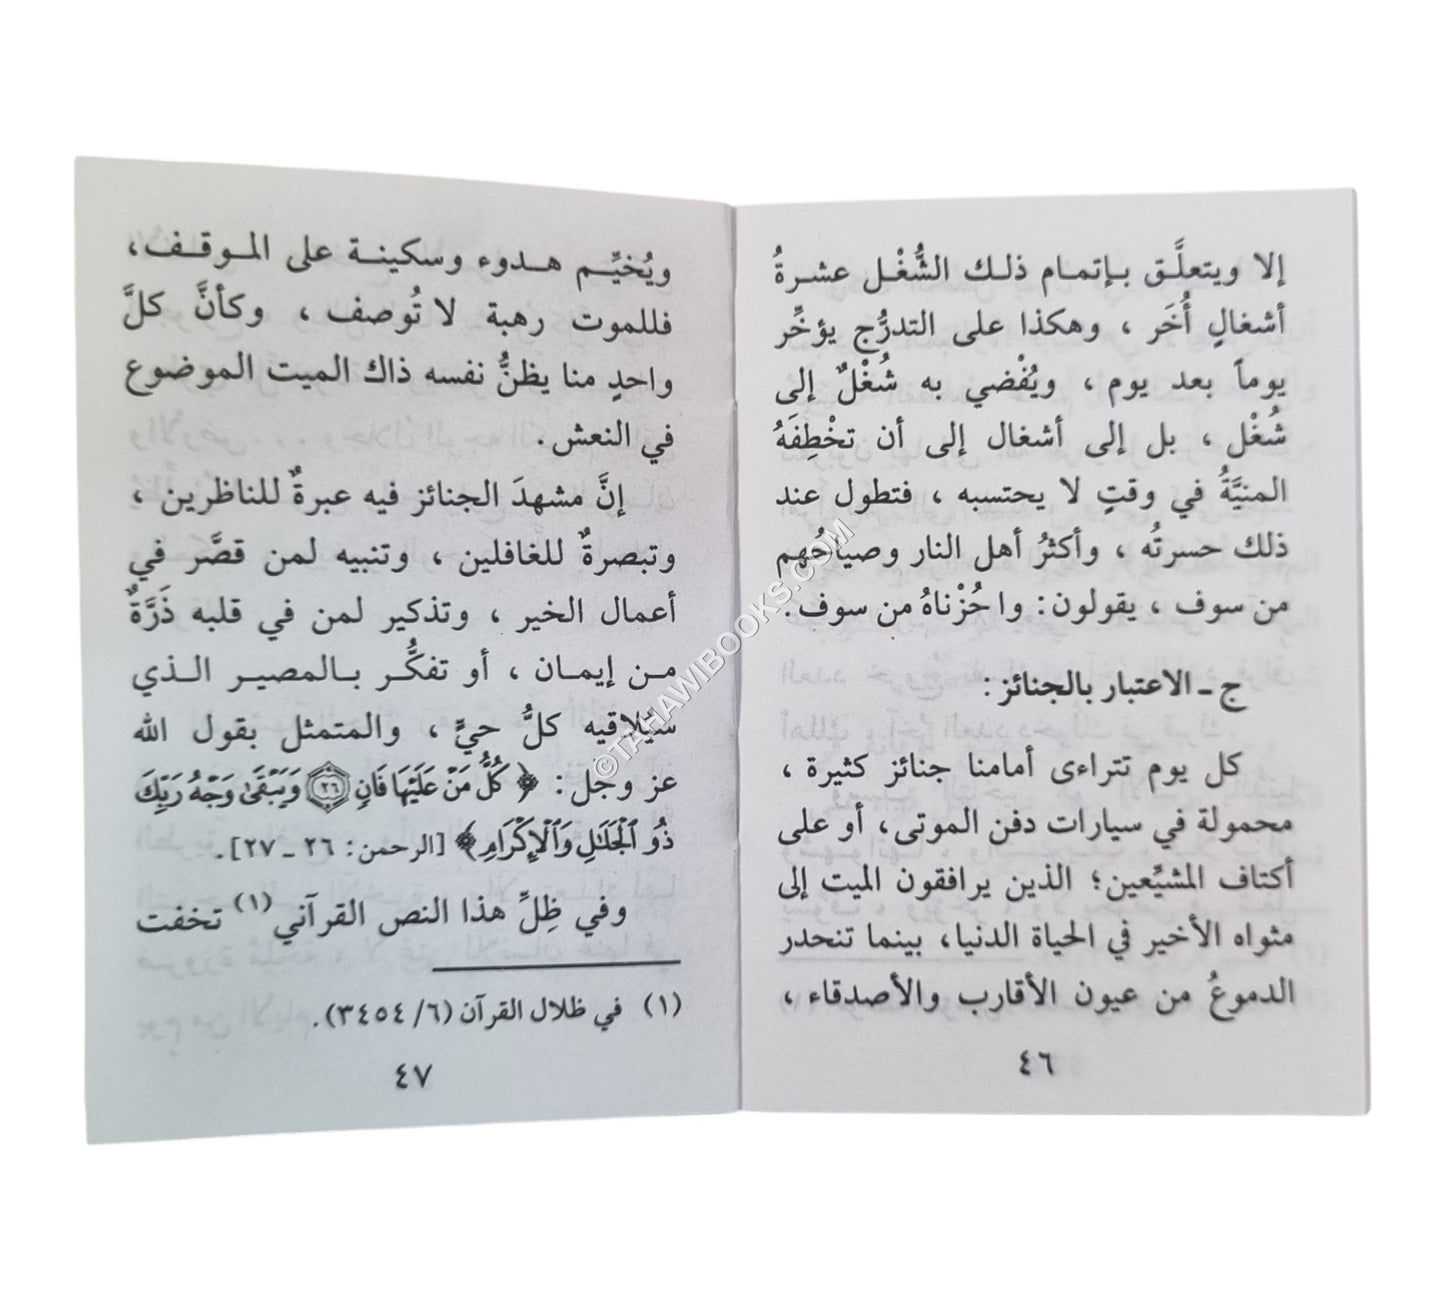 إلا ويتعلَّق بإتمام ذلك الشُّغْل عشرةُ
أشغالٍ أُخَر ، وهكذا على التدرُّج يؤخِّر
يوماً بعد يوم ، ويُفْضي به شُغْلٌ إلى
شُغْل ، بل إلى أشغال إلى أن تخْطِفَهُ
المنيَّةُ في وقتٍ لا يحتسبه ، فتطول عند
ذلك حسرتُه ، وأكثرُ أهل النار وصياحُهم
من سوف ، يقولون: واحُزْناهُ من سوف.
ج ـ الاعتبار بالجنائز:
كل يوم تتراءى أمامنا جنائز كثيرة ،
محمولة في سيارات دفن الموتى، أو على
أكتاف المشيِّعين؛ الذين يرافقون الميت إلى
مثواه الأخير في الحياة الدنيا، بينما تنحدر
الدموعُ من عيون الأقارب والأصدقاء ،
٤٦
ويُخيِّم هدوء وسكينة على الموقف،
فللموت رهبة لا تُوصف ، وكأنَّ كلَّ
واحدٍ منا يظنُّ نفسه ذاك الميت الموضوع
في النعش.
إنَّ مشهدَ الجنائز فيه عبرةٌ للناظرين ،
وتبصرةٌ للغافلين ، وتنبيه لمن قصَّر في
أعمال الخير ، وتذكير لمن في قلبه ذَرَّةٌ
من إيمان ، أو تفكُّر بالمصير الذي
سيُلاقيه كلُّ حيٍّ ، والمتمثل بقول الله
عز وجل: ﴿ كُلُّ مَنْ عَلَيْهَا فَانٍ ٢٦ وَيَبْقَىٰ وَجْهُ رَبِّكَ
ذُو ٱلْجَلَٰلِ وَٱلْإِكْرَامِ ﴾ [الرحمن: ٢٦ ـ ٢٧].
وفي ظِلِّ هذا النص القرآني (١) تخفت
(١) في ظلال القرآن (٦/ ٣٤٥٤).
٤٧
©TAHAWIBOOKS.COM